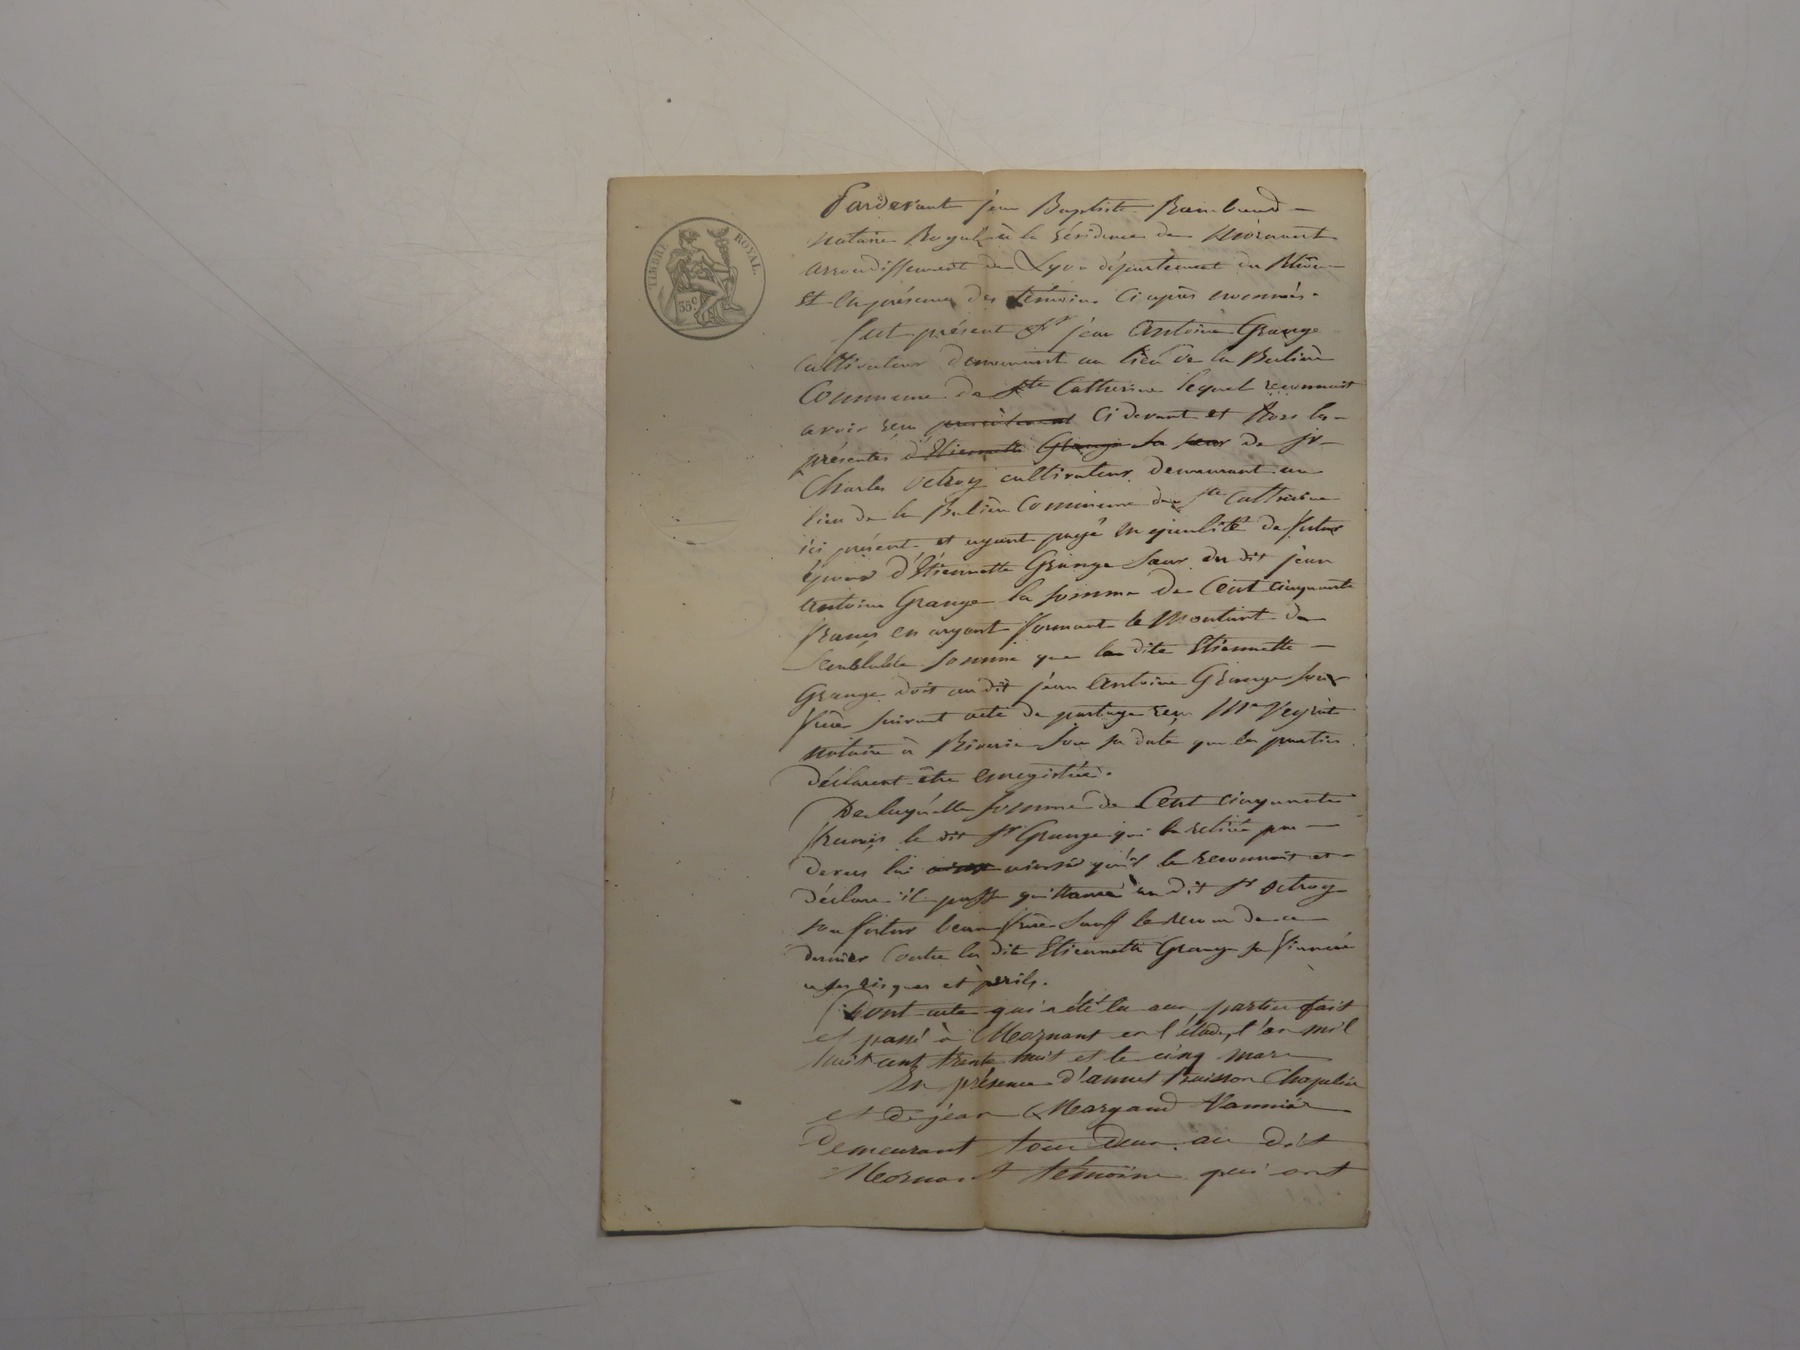 TIMBRE ROYAL.
35c
Pardevant jéan Baptiste Rambaud
notaire Royal à la résidence de Mornant
arrondissement de Lyon département du Rhône
Et en présence des témoins ci après nommés.
fut présent Sr jéan Antoine Grange
cultivateur demeurant au lieu de la
Commune de Ste Catherine lequel reconnait
avoir reçu présentement Ci devant et hors les
présentes d'Etiennette Grange sa sœur de sr
Charles Octroy cultivateur demeurant au
lieu de la Commune de Ste Catherine
ici présent et ayant payé en qualité de futur
époux d'Etiennette Grange sœur du dit jéan
Antoine Grange la somme de Cent cinquante
francs en argent formant le Montant de
semblable somme que la dite Etiennette
Grange doit au dit jéan Antoine Grange son
frère suivant acte de partage reçu Me
notaire à Riverie sous sa date que les parties
déclarent être enregistrée.
De laquelle somme de Cent cinquante
francs le dit Sr Grange qui la retirée par
devers lui ainsi qu'il le reconnait et
déclare il passe quittance au dit Sr Octroy
son futur beau frère sauf le recour de ce
dernier Contre la dite Etiennette Grange sa fiancée
a ses risques et périls.
Dont acte qui a été lu aux parties fait
et passé à Mornant en l'étude, l'an mil
huit cent trente huit et le cinq mars
En présence d'annet Buisson Chapelier
et de jéan Margand Vannier
Demeurant tous deux au dit
Mornant témoins qui ont